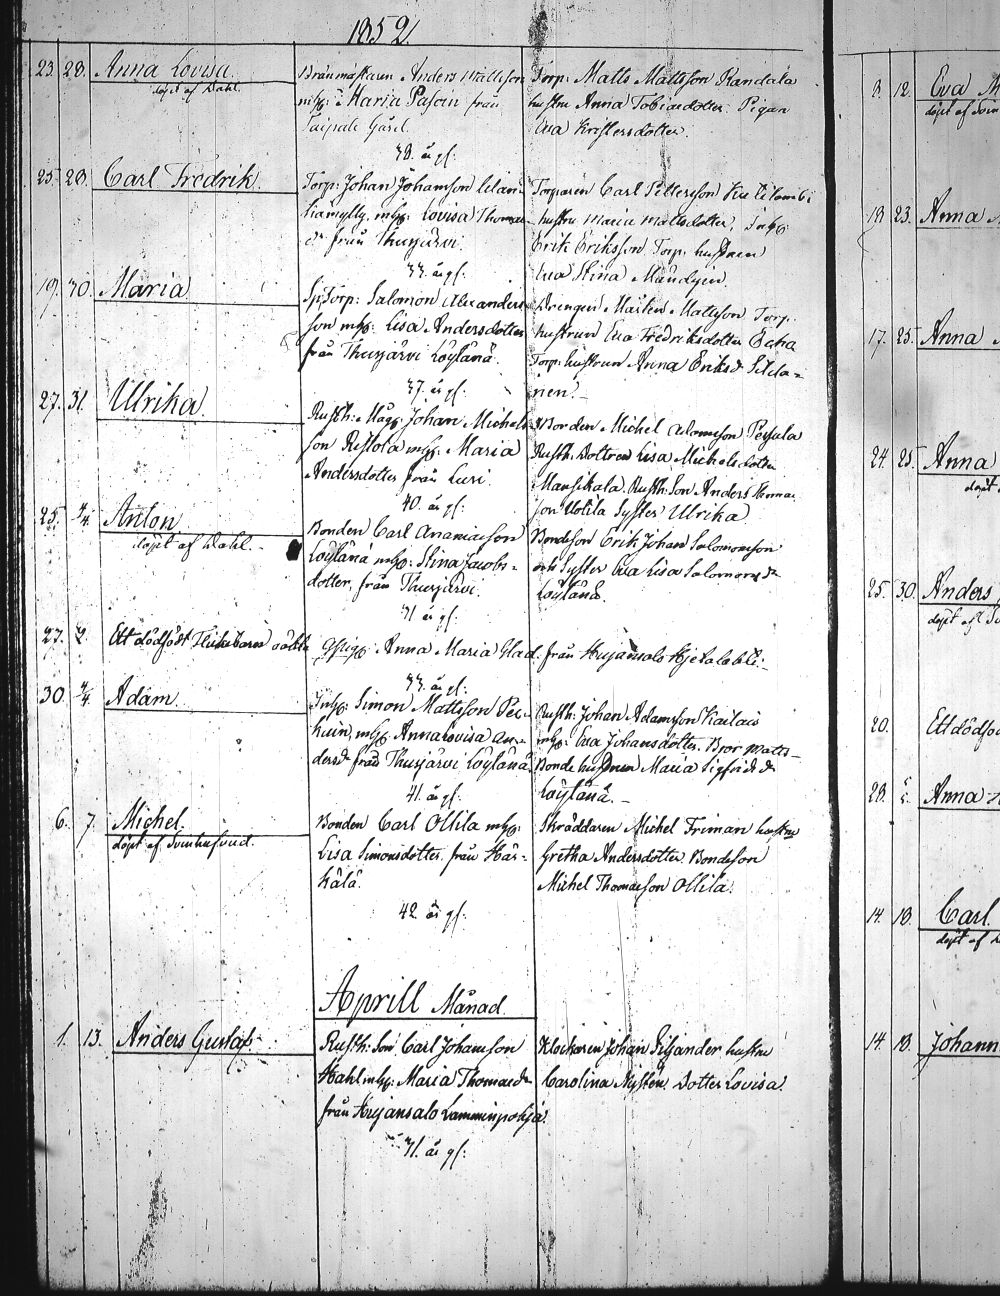 1852.
23. 28. Anna Lovisa.
döpt af Dahl.
Brännmästaren Anders Mattsson
mhu: Maria Pasoin från
Taipale Gård.
38. år gl:
Torp: Matts Mattsson Randala
hustru Anna Tobiaedotter. Pigan
Eva Kristersdotter.
25. 28. Carl Fredrik.
Torp: Johan Johansson
mhu: Lovisa Thomae
dr från Thurjärvi.
33. år gl:
Torparen Carl Pettersson
hustru Maria Mattsdotter,
Erik Eriksson Torp: hustrun
Eva Stina Mandyin.
19. 30. Maria
Sp:Torp: Salomon Alexanders
son mhu: Lisa Andersdotter
från Thurjärvi Löytänä.
37. år gl:
Drengen Matten Mattsson Torp:
hustrun Eva Fredriksdotter
Torp: hustrun Anna Eriksd
nen.
27. 31. Ulrika.
Rusth: Måg: Johan Michels
son Ristola mhu: Maria
Andersdotter från Luri.
40. år gl:
Bonden Michel Adamsson Peisala
Rusth: Dottren Lisa Michelsdotter
Mansikala. Rusth: Son Anders Thomas
son Uolila Syster Ulrika
25. 4/4. Anton
döpt af Dahl.
Bonden Carl Ananiaesson
Löytänä mhu: Stina Jacobs-
dotter, från Thurjärvi.
31 år gl:
Bondeson Erik Johan Salomonsson
och Syster Eva Lisa Salomonsdr
Löytänä.
27. 2. Ett dödfödt Flickebarn oäkta
Anna Maria Glad från Hirjänsalo Hjetalahti.
33. år gl:
30. 4/4. Adam
Inh: Simon Mattsson Pec-
kuin, mhu: Anna Lovisa An-
dersdr från Thurjärvi Löytänä
41. år gl:
Rusth: Johan Adamsson Kailais
mhu: Eva Johansdotter. Bror Matts
Bonde hustrun Maria Sigfridsdr
Löytänä.
6. 7. Michel.
döpt af Svinhufvud.
Bonden Carl Ollila mhu:
Lisa Simonsdotter. från Här-
kälä.
42 år gl:
Skräddaren Michel Friman hustru
Gretha Andersdotter. Bondeson
Michel Thomaeson Ollila.
Aprill Månad.
1. 13. Anders Gustaf.
Rusth: Son Carl Johansson
Hahl mhu: Maria Thomaedr
från Hirjänsalo Lamminpohja.
31. år gl:
Klockaren Johan Siljander hustru
Carolina Nystén. Dotter Lovisa.
8. 12. Eva
döpt af
18. 23. Anna
17. 25. Anna
24. 25. Anna
döpt
25. 30. Anders
döpt af
20. Ett dödfö
28. Anna
14. 18. Carl
döpt af
14. 18. Johann